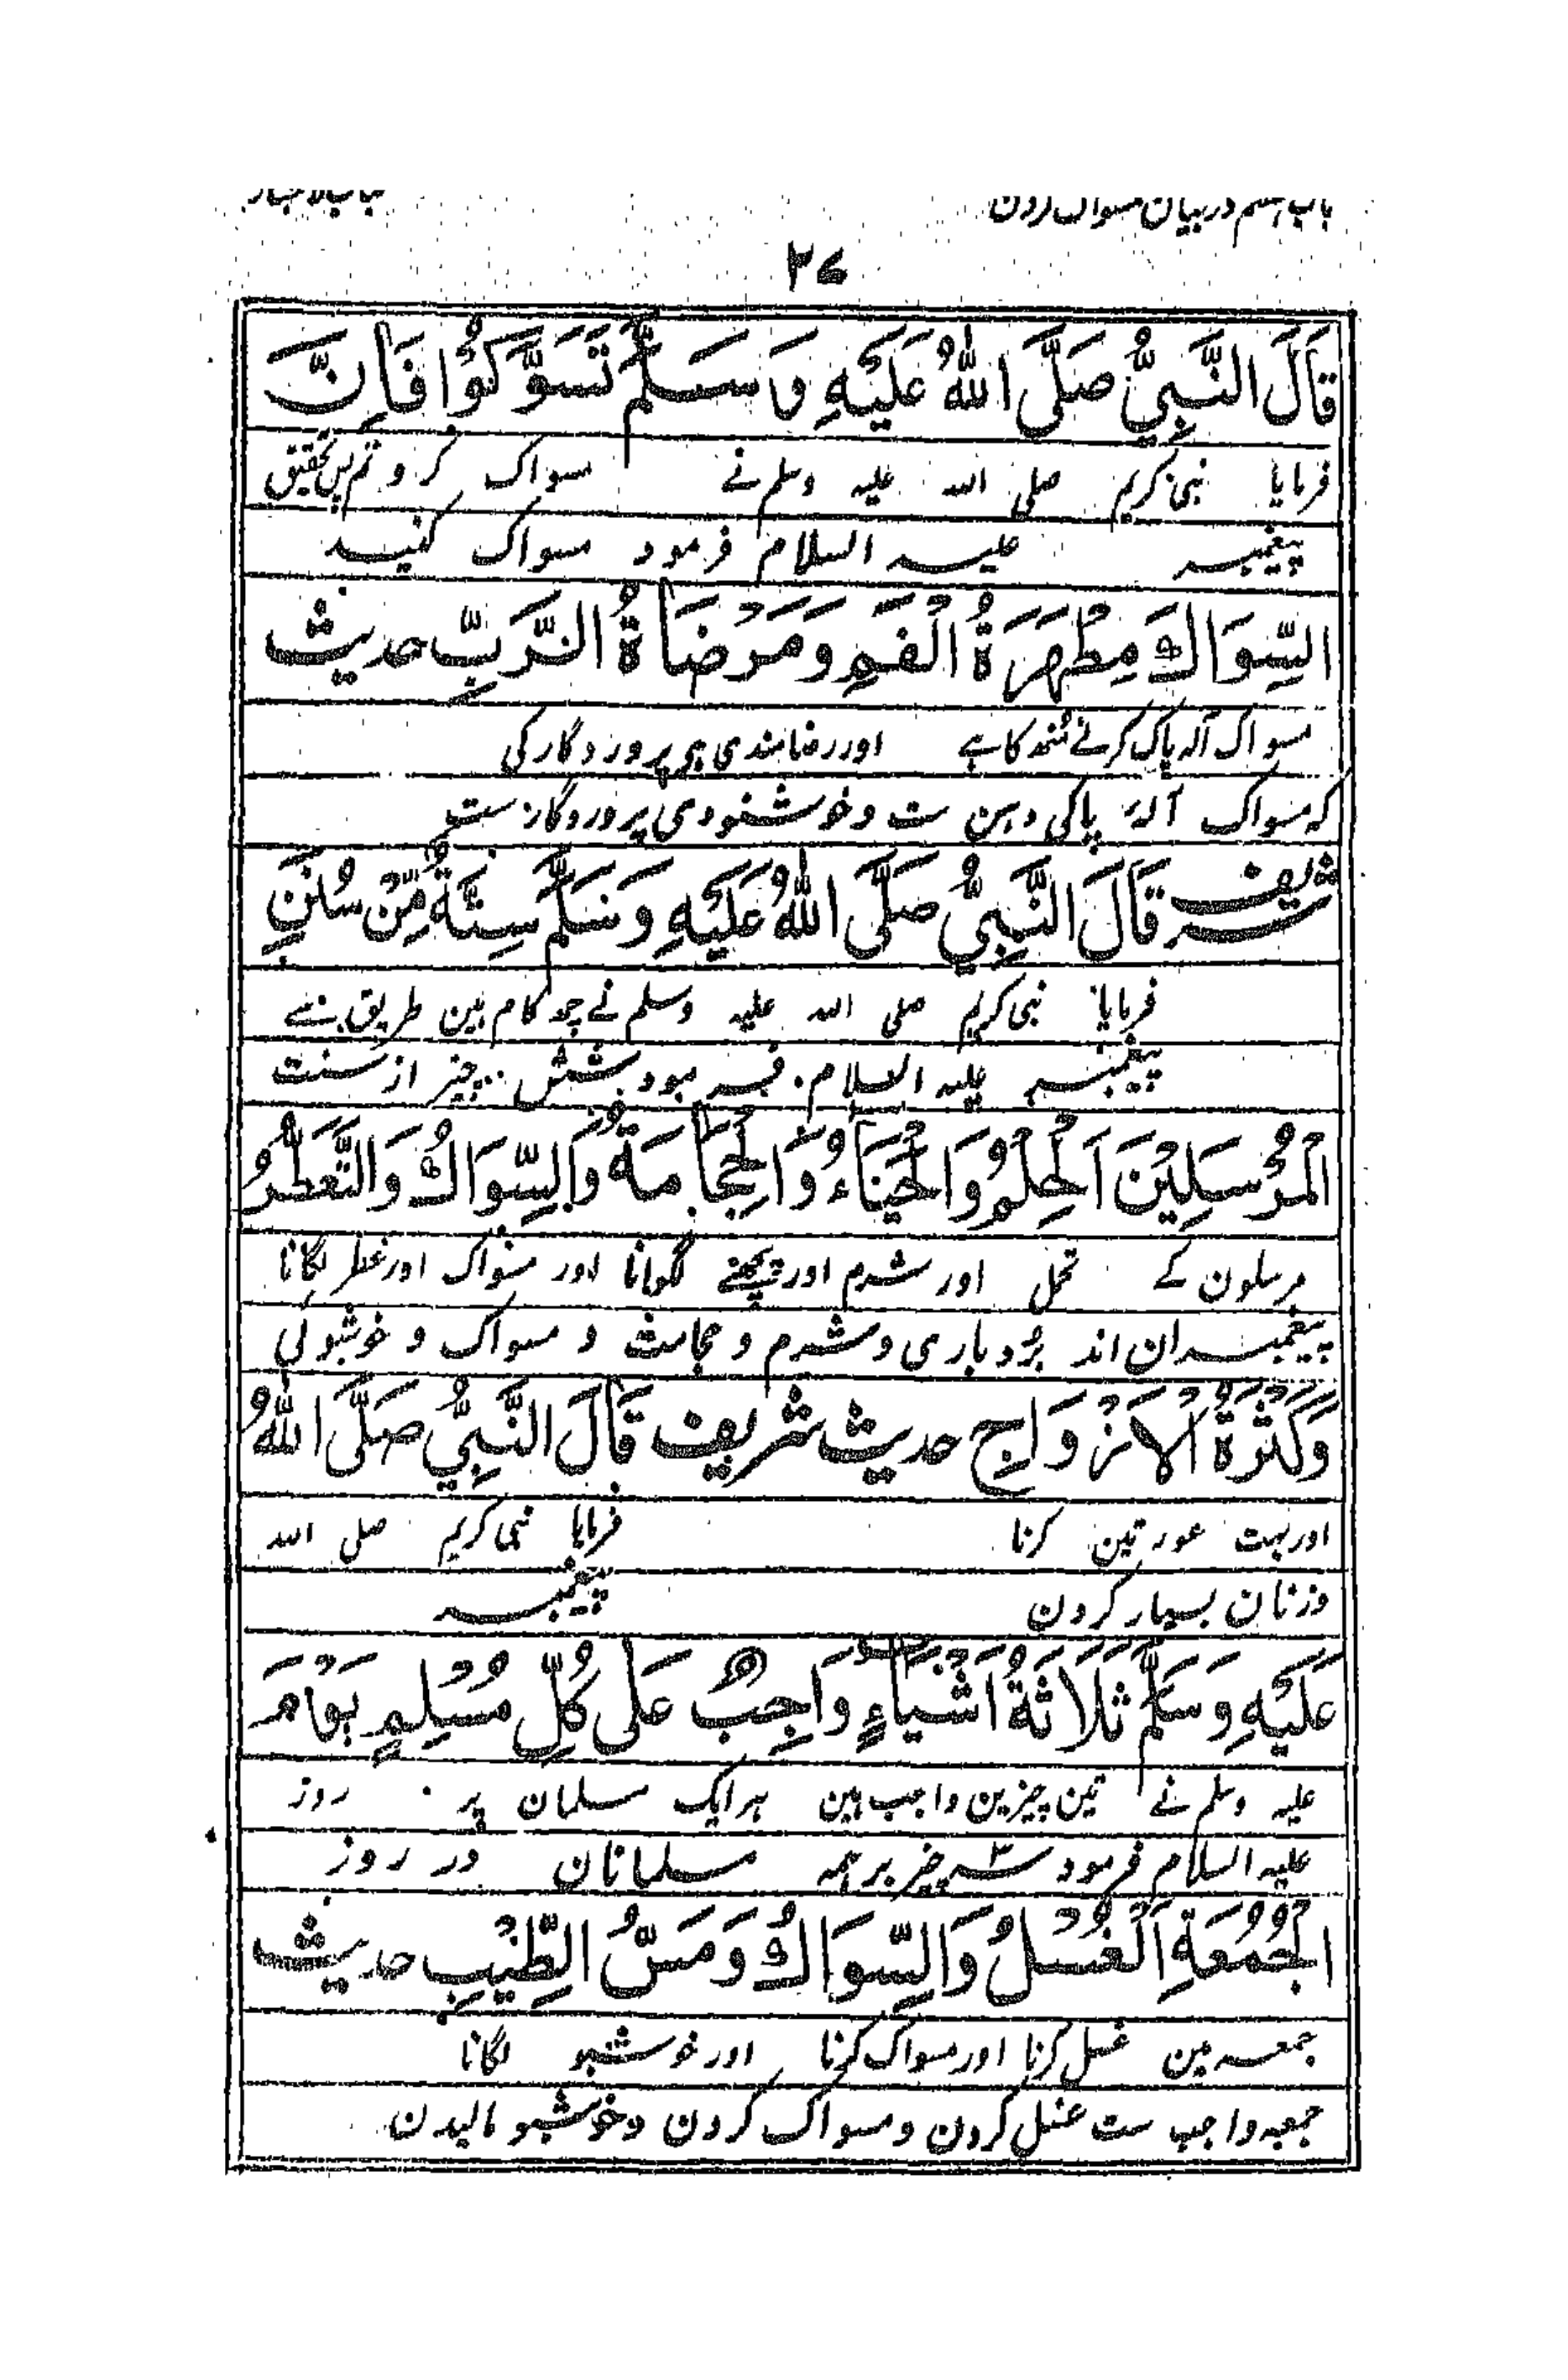 باب در بیان مسواک کردن
۳۷
قَالَ النَّبِيُّ صَلَّى اللهُ عَلَيْهِ وَسَلَّمَ تَسَوَّكُوْا فَاِنَّ
فرمایا نبی کریم صلی اللہ علیہ وسلم نے مسواک کرو تم پس تحقیق
پیغمبر علیہ السلام فرمود مسواک کنید
السِّوَاكَ مِطْهَرَةُ الْفَمِ وَمَرْضَاةُ الرَّبِّ حدیث
مسواک آلہ پاک کرنے منہ کا ہے اور رضامندی ہے پروردگار کی
کہ مسواک آلہ پاکی دہن ست و خوشنودی پروردگار ست
شریف قَالَ النَّبِيُّ صَلَّى اللهُ عَلَيْهِ وَسَلَّمَ سِتَّةٌ مِّنْ سُنَنِ
فرمایا نبی کریم صلی اللہ علیہ وسلم نے چھ کام ہین طریق سے
پیغمبر علیہ السلام فرمود شش چیز از سنت
الْمُرْسَلِيْنَ اَلْحِلْمُ وَالْحَيَاءُ وَالْحِجَامَةُ وَالسِّوَاكُ وَالتَّعَطُّرُ
مرسلون کے تحمل اور شرم اور پچھنے لگوانا اور مسواک اور عطر لگانا
پیغمبران اند بُردباری و شرم و حجامت و مسواک و خوشبوئی
وَكَثْرَةُ الْاَزْوَاجِ حدیث شریف قَالَ النَّبِيُّ صَلَّى اللهُ
اور بہت عورتین کرنا فرمایا نبی کریم صلی اللہ
و زنان بسیار کردن پیغمبر
عَلَيْهِ وَسَلَّمَ ثَلَاثَةُ اَشْيَاءٍ وَاجِبٌ عَلٰى كُلِّ مُسْلِمٍ يَوْمَ
علیہ وسلم نے تین چیزین واجب ہین ہر ایک مسلمان پر روز
علیہ السلام فرمود سہ چیز بر ہمہ مسلمانان در روز
الْجُمُعَةِ اَلْغُسْلُ وَالسِّوَاكُ وَمَسُّ الطِّيْبِ حدیث
جمعہ مین غسل کرنا اور مسواک کرنا اور خوشبو لگانا
جمعہ واجب ست غسل کردن و مسواک کردن و خوشبو مالیدن